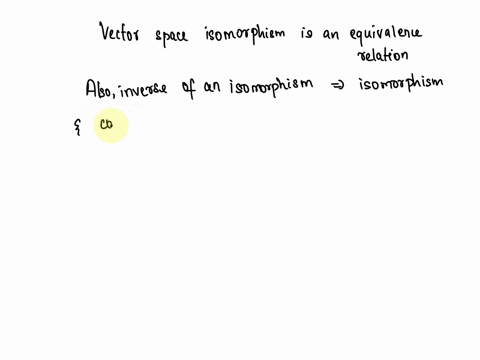 Vector space isomorphism is an equivalence
relation
Also, inverse of an isomorphism ⇒ isomorphism
& co